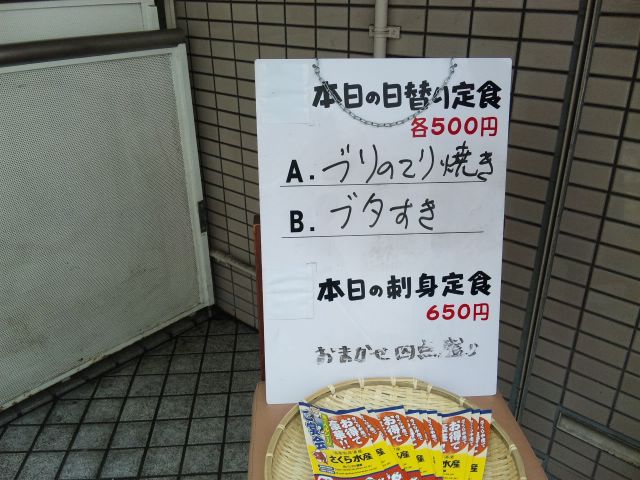 本日の日替り定食
各500円
A. ブリのてり焼き
B. ブタすき
本日の刺身定食
650円
おまかせ四点盛り
お得で
さくら水産